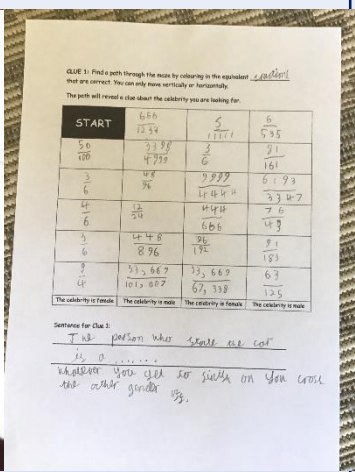 CLUE 1: Find a path through the maze by colouring in the equivalent fractions
that are correct. You can only move vertically or horizontally.
The path will reveal a clue about the celebrity you are looking for.
START 666/1234 6/535
50/100 3/6 81/161
3/6 48/96 9999/4444 6193/3347
4/6 12/24 444/666 76/49
3/6 448/896 96/192 91/183
9/4 33,667/101,007 33,669/67,338 63/125
The celebrity is female The celebrity is male The celebrity is female The celebrity is male
Sentence for Clue 1:
The person who stole the car
is a ......
whatever you get for on you cross
the other gender off.